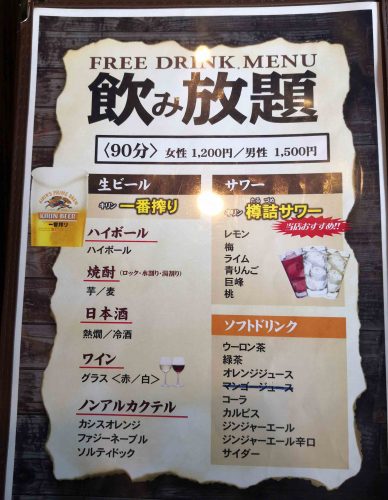 FREE DRINK MENU
飲み放題
〈90分〉 女性 1,200円／男性 1,500円
生ビール
キリン 一番搾り
KIRIN BEER
一番搾り
ハイボール
ハイボール
焼酎 (ロック・水割り・湯割り)
芋／麦
日本酒
熱燗／冷酒
ワイン
グラス〈赤／白〉
ノンアルカクテル
カシスオレンジ
ファジーネーブル
ソルティドック
サワー
キリン 樽詰サワー
たる づめ
当店おすすめ!!
レモン
梅
ライム
青りんご
巨峰
桃
ソフトドリンク
ウーロン茶
緑茶
オレンジジュース
マンゴージュース
コーラ
カルピス
ジンジャーエール
ジンジャーエール辛口
サイダー